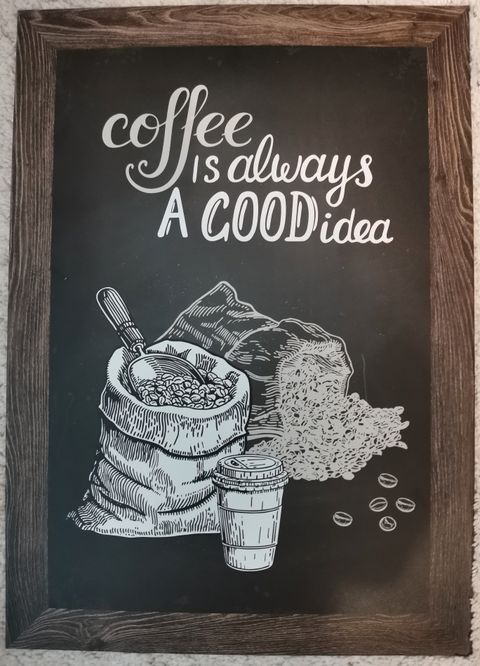 coffee
IS always
A GOOD idea